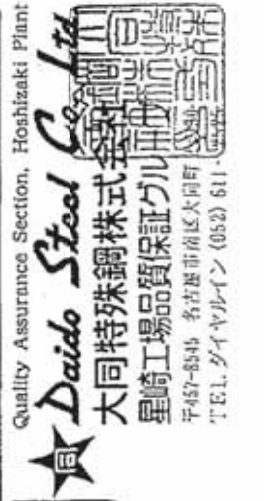 Quality Assurance Section, Hoshizaki Plant
Daido Steel Co., Ltd
大同特殊鋼株式会社
星崎工場品質保証グル
〒457-8545 名古屋市南区大同町
TEL. ダイヤルイン (052) 611-